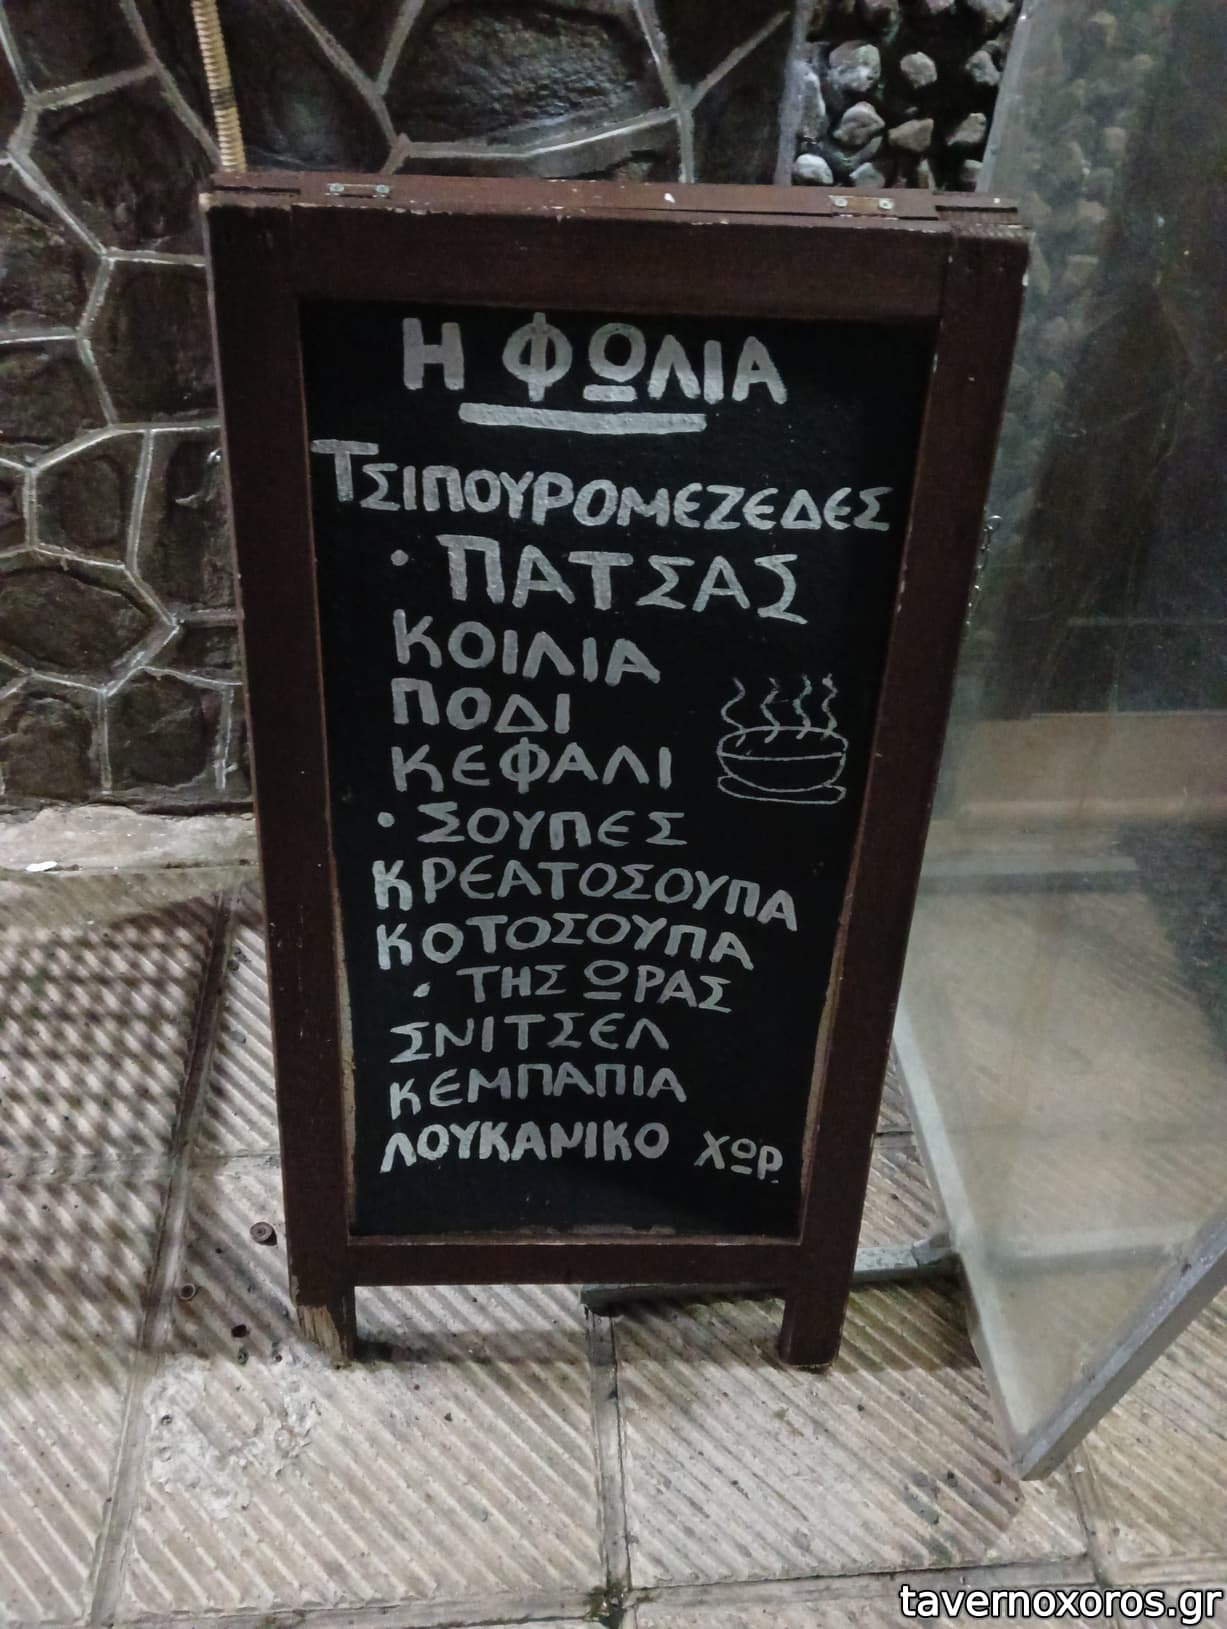 Η ΦΩΛΙΑ
ΤΣΙΠΟΥΡΟΜΕΖΕΔΕΣ
· ΠΑΤΣΑΣ
ΚΟΙΛΙΑ
ΠΟΔΙ
ΚΕΦΑΛΙ
· ΣΟΥΠΕΣ
ΚΡΕΑΤΟΣΟΥΠΑ
ΚΟΤΟΣΟΥΠΑ
· ΤΗΣ ΩΡΑΣ
ΣΝΙΤΣΕΛ
ΚΕΜΠΑΠΙΑ
ΛΟΥΚΑΝΙΚΟ ΧΩΡ.
tavernoxoros.gr